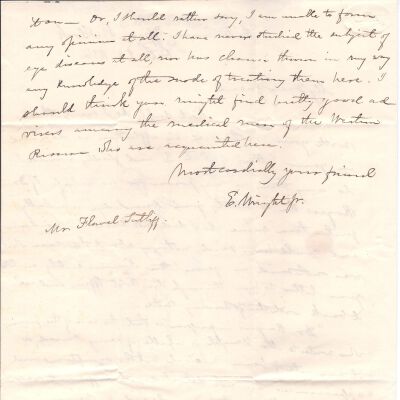 tion — Or, I should rather say, I am unable to form
any opinion at all. I have never studied the subject of
eye diseases at all, nor has chance thrown in my way
any knowledge of the mode of treating them here. I
should think you might find pretty good ad
visers among the medical men of the Western
Reserve who are acquainted here.
Most cordially your friend
E. Wright Jr.
Mr. Flavel Sutliff.